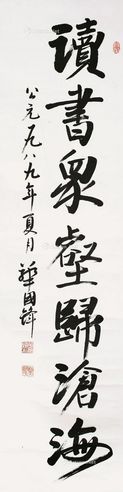 讀書眾壑歸滄海
公元一九八九年夏月
華國鋒